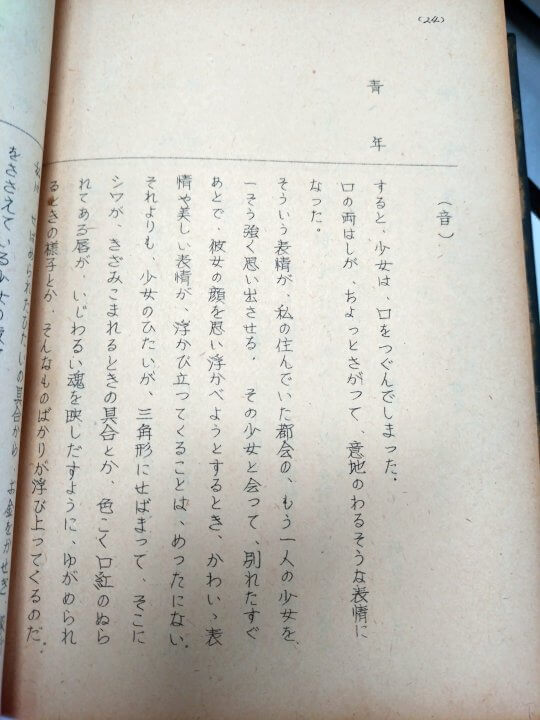 (24)
青年
(音)
すると、少女は、口をつぐんでしまった。
口の両はしが、ちょっとさがって、意地のわるそうな表情に
なった。
そういう表情が、私の住んでいた都会の、もう一人の少女を、
一そう強く思い出させる。その少女と会って、別れたすぐ
あとで、彼女の顔を思い浮かべようとするとき、かわいゝ表
情や美しい表情が、浮かび立ってくることは、めったにない。
それよりも、少女のひたいが、三角形にせばまって、そこに
シワが、きざみこまれるときの具合とか、色こく口紅のぬら
れてある唇が、いじわるい魂を映しだすように、ゆがめられ
るときの様子とか、そんなものばかりが浮び上ってくるのだ。
せばめられたひたいの具合から お金をかせぎ
をささえている少女の